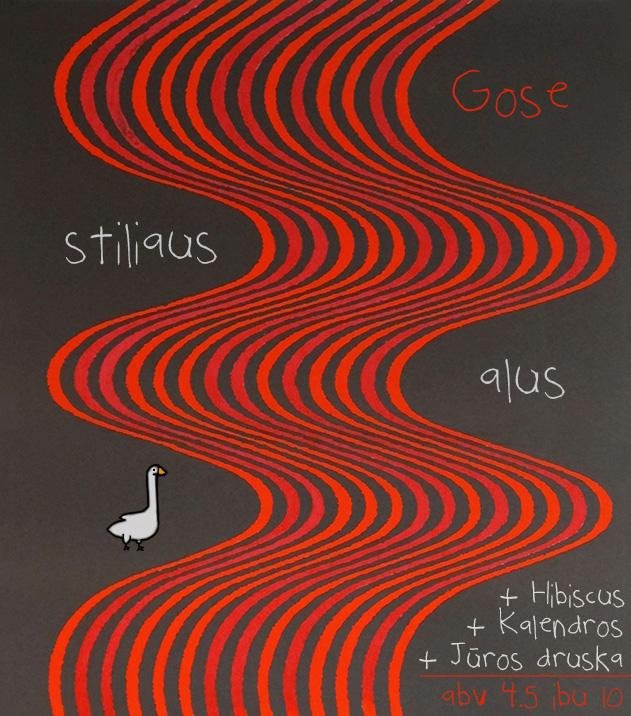 Gose
stiliaus
alus
+ Hibiscus
+ Kalendros
+ Jūros druska
abv 4.5 ibu 10